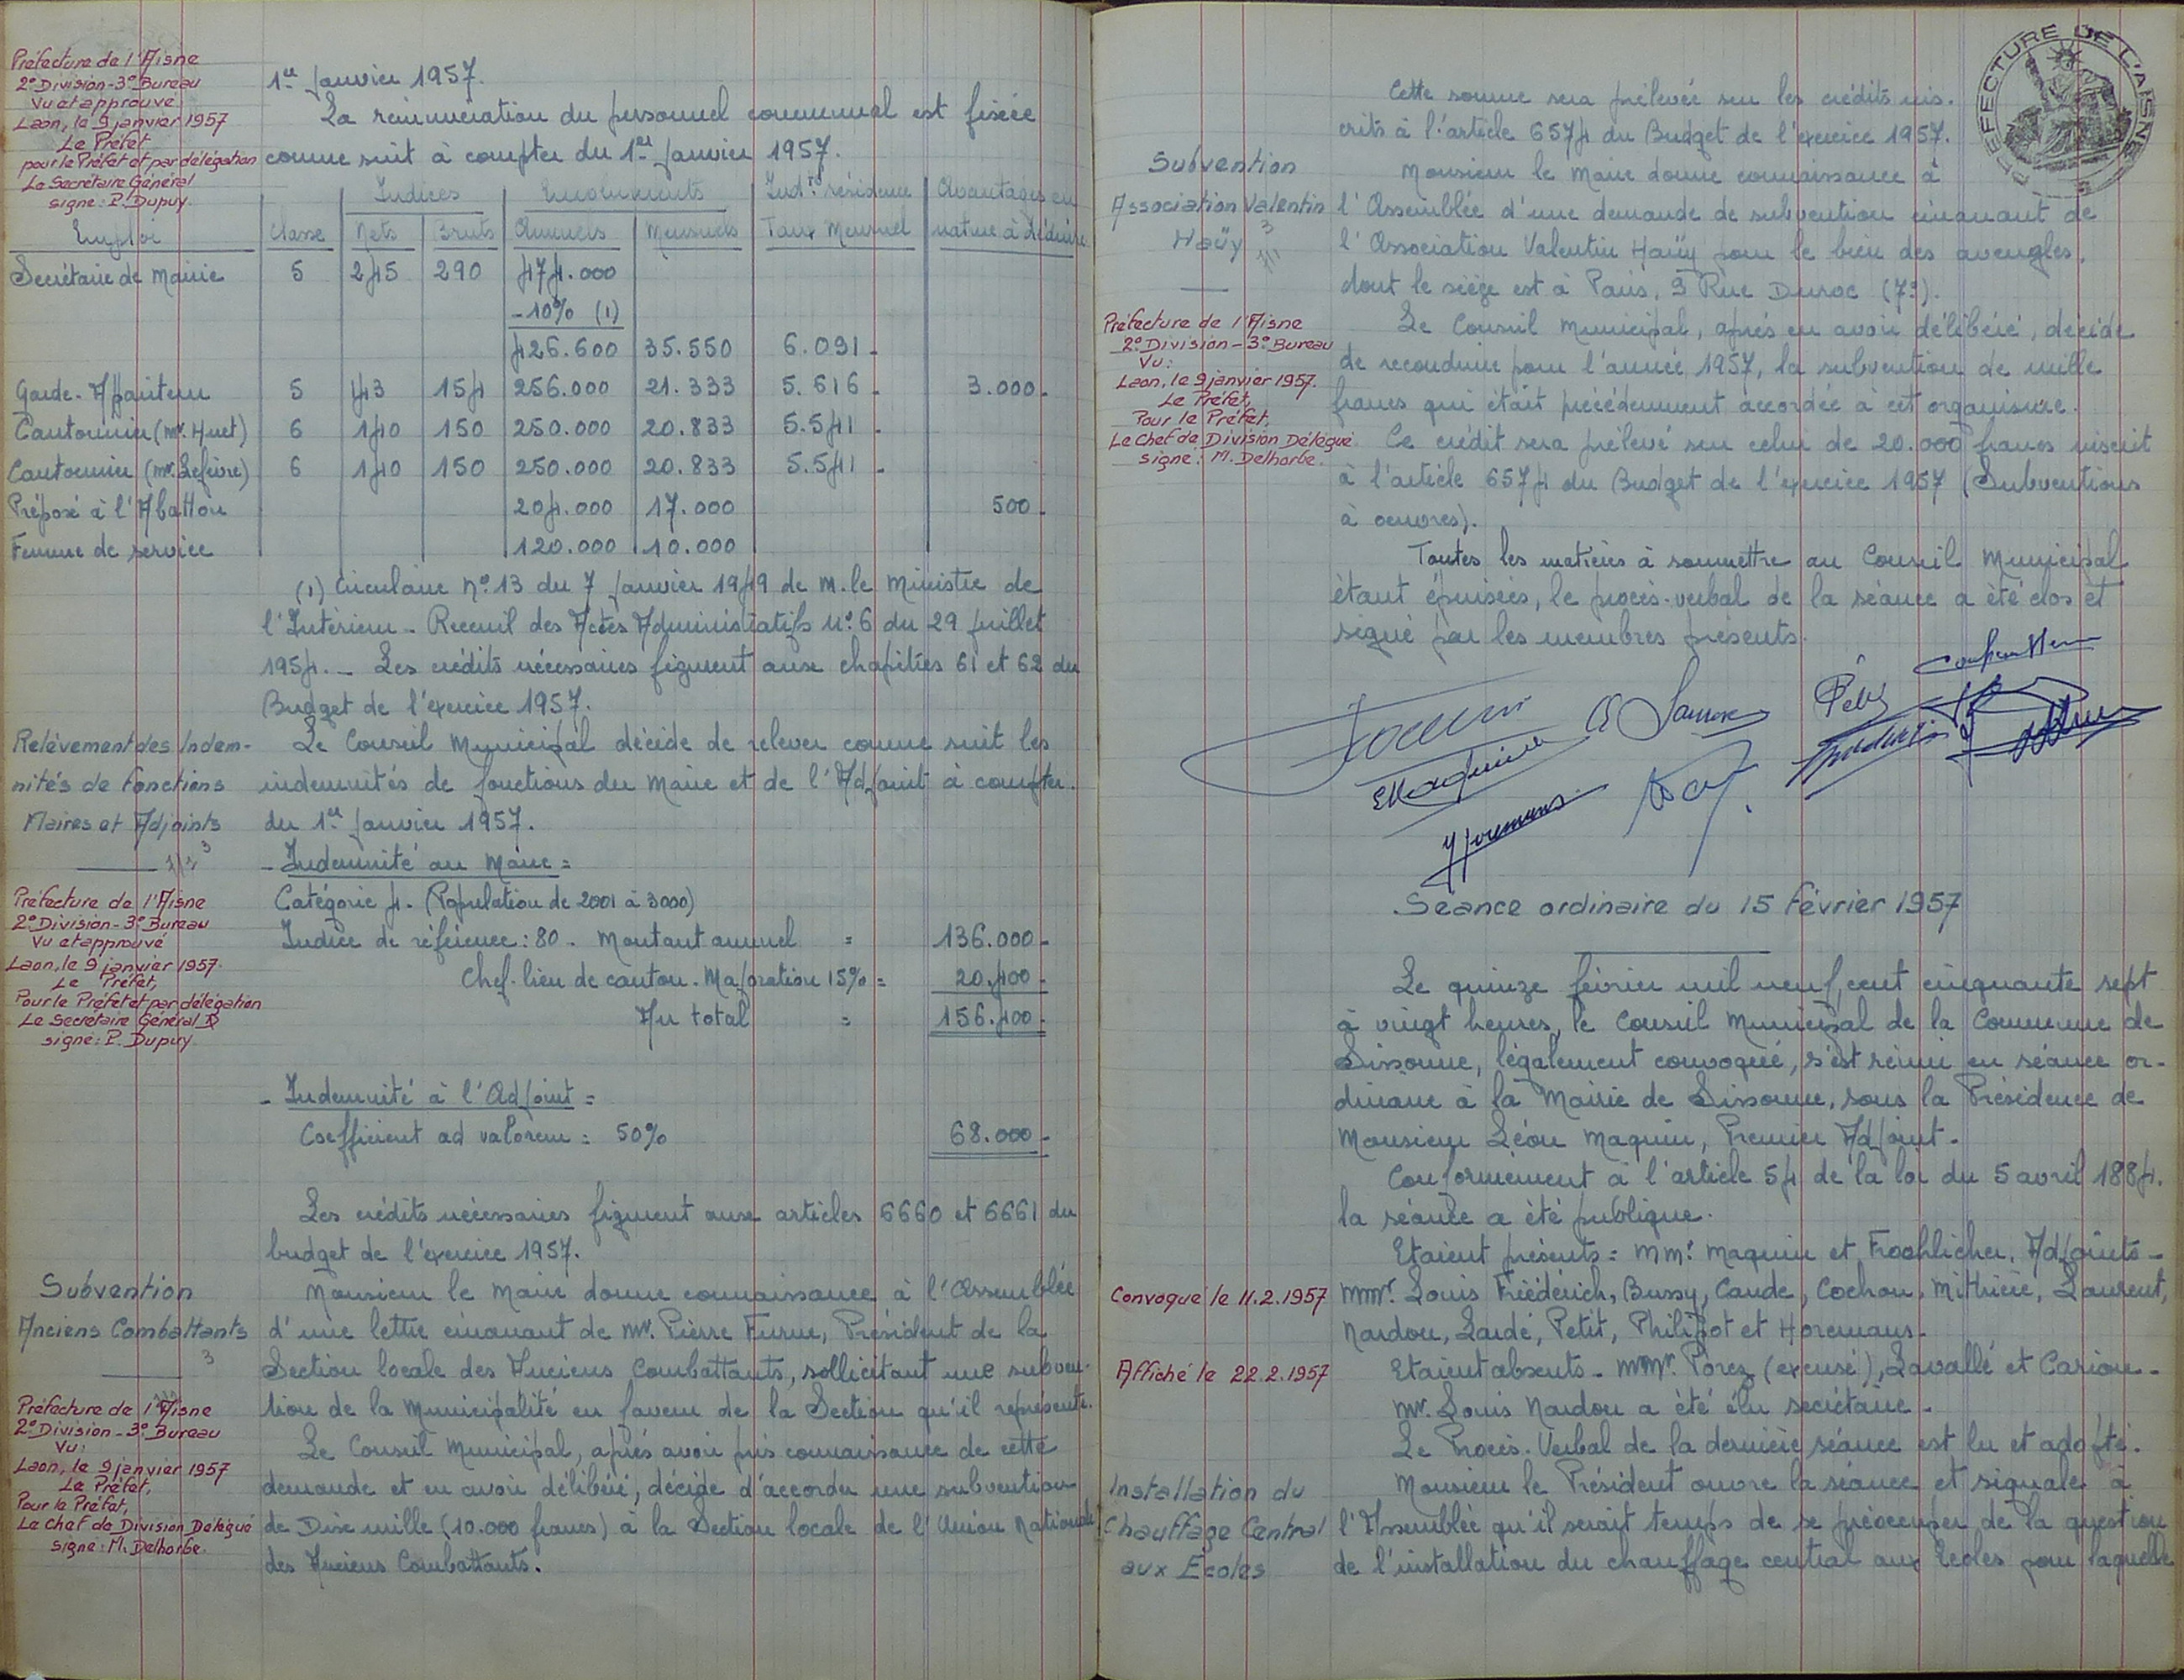 Préfecture de l'Aisne
2e Division - 3e Bureau
Vu et approuvé
Laon, le 9 janvier 1957
Le Préfet
pour le Préfet et par délégation
Le Secrétaire Général
signé : P. Dupuy
1er Janvier 1957.
La rémunération du personnel communal est fixée
comme suit à compter du 1er Janvier 1957.
Indices Emoluments Indté résidence Avantages en
Emploi Classe Nets Bruts Annuels Mensuels Taux Mensuel nature à déduire
Secrétaire de Mairie 5 245 290 474.000
-10% (1)
426.600 35.550 6.091 -
Garde-Appariteur 5 143 154 256.000 21.333 5.616 - 3.000 -
Cantonnier (Mr. Huet) 6 140 150 250.000 20.833 5.541 -
Cantonnier (Mr. Lefèvre) 6 140 150 250.000 20.833 5.541 -
Préposé à l'Abattoir 204.000 17.000 500 -
Femme de service 120.000 10.000
(1) Circulaire No 13 du 7 Janvier 1949 de M. le Ministre de
l'Intérieur - Recueil des Actes Administratifs No 6 du 29 juillet
1954. - Les crédits nécessaires figurent aux chapitres 61 et 62 du
Budget de l'exercice 1957.
Relèvement des Indem-
nités de Fonctions
Maires et Adjoints
Le Conseil Municipal décide de relever comme suit les
indemnités de fonctions du Maire et de l'Adjoint à compter
du 1er Janvier 1957.
- Indemnité au Maire =
Préfecture de l'Aisne
2e Division - 3e Bureau
Vu et approuvé
Laon, le 9 janvier 1957.
Le Préfet,
Pour le Préfet et par délégation
Le Secrétaire Général
signé : P. Dupuy
Catégorie 4. (Population de 2001 à 3000)
Indice de référence : 80. Montant annuel = 136.000 -
Chef-lieu de canton. Majoration 15% = 20.400 -
Au total = 156.400 -
- Indemnité à l'Adjoint =
Coefficient ad valorem : 50% 68.000 -
Les crédits nécessaires figurent aux articles 6660 et 6661 du
budget de l'exercice 1957.
Subvention
Anciens Combattants
3
Monsieur le Maire donne connaissance à l'Assemblée
d'une lettre émanant de Mr. Pierre Furne, Président de la
Section locale des Anciens Combattants, sollicitant une subven-
tion de la Municipalité en faveur de la Section qu'il représente.
Préfecture de l'Aisne
2e Division - 3e Bureau
Vu :
Laon, le 9 janvier 1957
Le Préfet,
Pour le Préfet,
Le Chef de Division Délégué
signé : M. Delhorbe.
Le Conseil Municipal, après avoir pris connaissance de cette
demande et en avoir délibéré, décide d'accorder une subvention
de Dix mille (10.000 francs) à la Section locale de l'Union Nationale
des Anciens Combattants.
PREFECTURE DE L'AISNE
Cette somme sera prélevée sur les crédits ins-
crits à l'article 6574 du Budget de l'exercice 1957.
Subvention
Association Valentin
Haüy
3
Monsieur le Maire donne connaissance à
l'Assemblée d'une demande de subvention émanant de
l'Association Valentin Haüy pour le bien des aveugles,
dont le siège est à Paris, 9 Rue Duroc (7e).
Préfecture de l'Aisne
2e Division - 3e Bureau
Vu :
Laon, le 9 janvier 1957.
Le Préfet,
Pour le Préfet,
Le Chef de Division Délégué
signé : M. Delhorbe.
Le Conseil Municipal, après en avoir délibéré, décide
de reconduire pour l'année 1957, la subvention de mille
francs qui était précédemment accordée à cet organisme.
Ce crédit sera prélevé sur celui de 20.000 francs inscrit
à l'article 6574 du Budget de l'exercice 1957 (Subventions
à oeuvres).
Toutes les matières à soumettre au Conseil Municipal
étant épuisées, le procès-verbal de la séance a été clos et
signé par les membres présents.
Séance ordinaire du 15 Février 1957
Le quinze février mil neuf cent cinquante sept
à vingt heures, le Conseil Municipal de la Commune de
Sissonne, légalement convoqué, s'est réuni en séance or-
dinaire à la Mairie de Sissonne, sous la Présidence de
Monsieur Léon Maquin, Premier Adjoint.
Conformément à l'article 54 de la loi du 5 avril 1884.
la séance a été publique.
Etaient présents = MM. Maquin et Froehlicher, Adjoints -
Convoqué le 11.2.1957
MMr. Louis Fréédérich, Bussy, Caude, Cochon, Mithière, Laurent,
Nardou, Lardé, Petit, Philipot et Horemans -
Affiché le 22.2.1957
Etaient absents - MMr. Porez (excusé), Lavallé et Carion -
Mr. Louis Nardou a été élu secrétaire -
Le Procès-Verbal de la dernière séance est lu et adopté.
Installation du
Chauffage Central
aux Écoles
Monsieur le Président ouvre la séance et signale à
l'Assemblée qu'il serait temps de se préoccuper de la question
de l'installation du chauffage central aux Ecoles pour laquelle